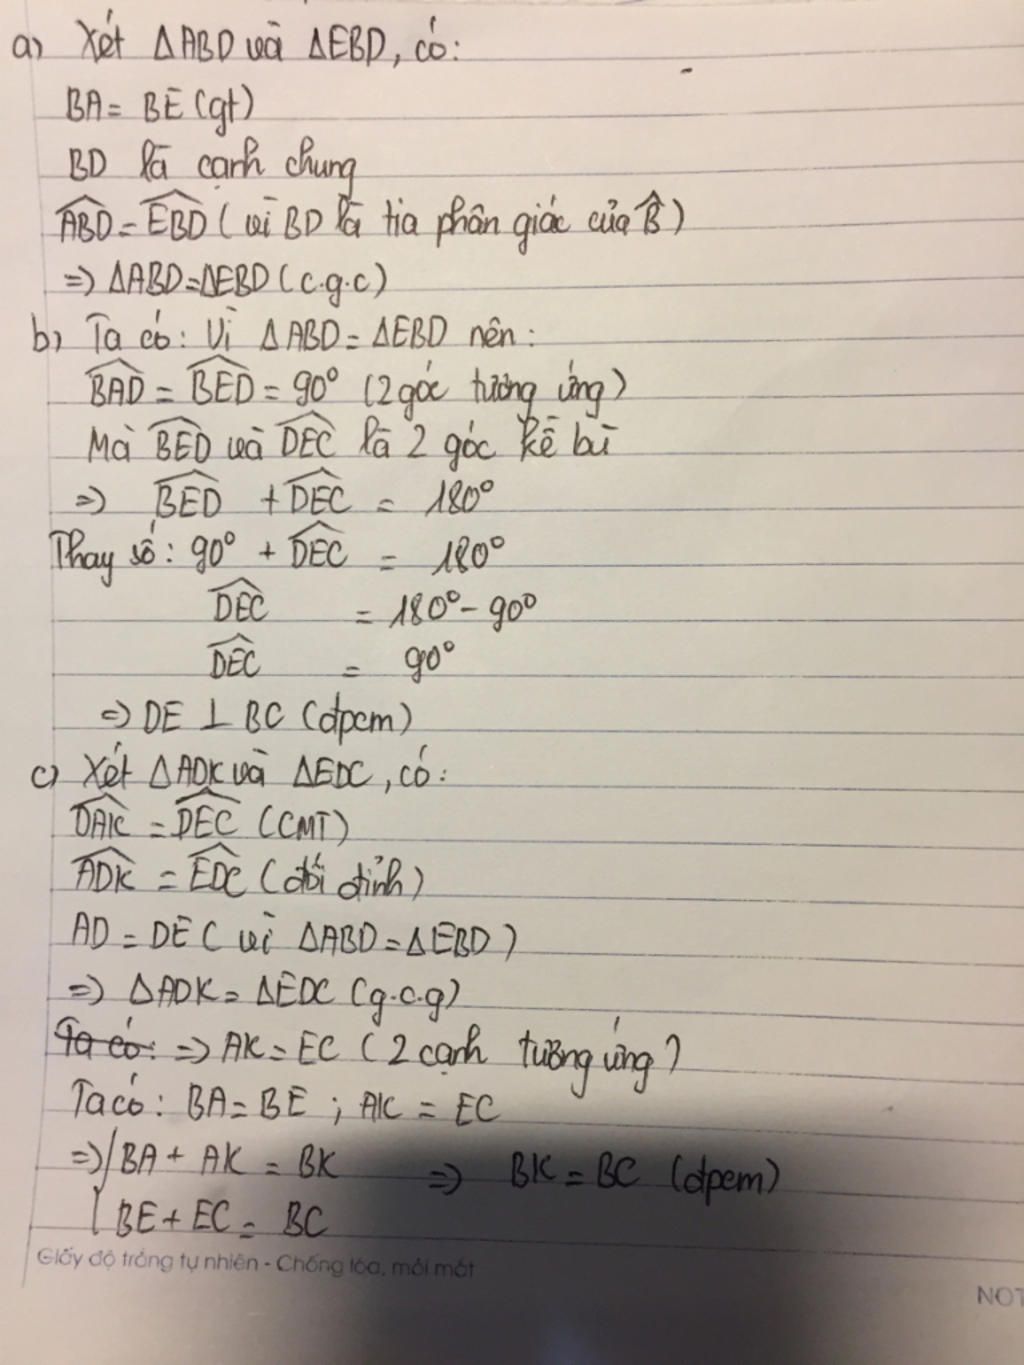 a) Xét ΔABD và ΔEBD, có:
BA = BE (gt)
BD là cạnh chung
\widehat{ABD} = \widehat{EBD} ( vì BD là tia phân giác của \widehat{B} )
=> ΔABD = ΔEBD ( c.g.c )
b) Ta có: Vì ΔABD = ΔEBD nên:
\widehat{BAD} = \widehat{BED} = 90° (2 góc tương ứng)
Mà \widehat{BED} và \widehat{DEC} là 2 góc kề bù
=> \widehat{BED} + \widehat{DEC} = 180°
Thay số: 90° + \widehat{DEC} = 180°
\widehat{DEC} = 180° - 90°
\widehat{DEC} = 90°
=> DE ⊥ BC (đpcm)
c) Xét ΔADK và ΔEDC, có:
\widehat{DAK} = \widehat{DEC} (CMT)
\widehat{ADK} = \widehat{EDC} (đối đỉnh)
AD = DE ( vì ΔABD = ΔEBD )
=> ΔADK = ΔEDC (g.c.g)
Ta có: => AK = EC ( 2 cạnh tương ứng )
Ta có: BA = BE ; AK = EC
=> { BA + AK = BK => BK = BC (đpcm)
BE + EC = BC
Giấy độ trắng tự nhiên - Chống lóa, mỏi mắt
NOT